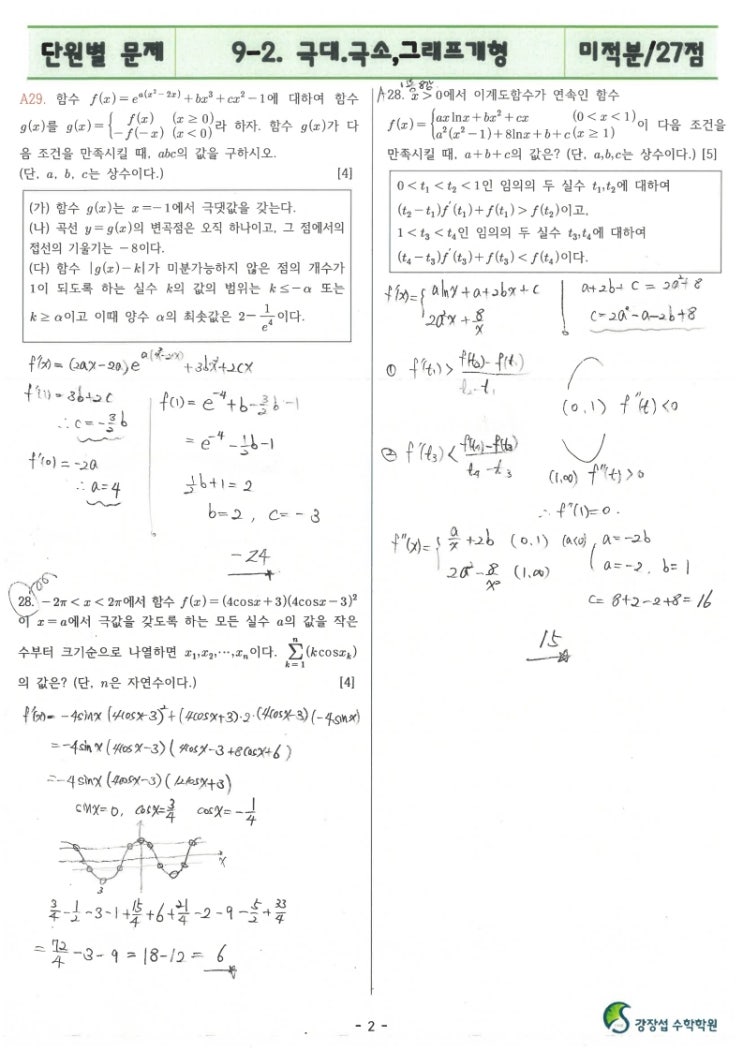 단원별 문제
9-2. 극대.극소,그래프개형
미적분/27점
A29. 함수 f(x)=e^{a(x²-2x)}+bx³+cx²-1에 대하여 함수
g(x)를 g(x)={ f(x) (x≥0) -f(-x) (x<0) 라 하자. 함수 g(x)가 다
음 조건을 만족시킬 때, abc의 값을 구하시오.
(단, a, b, c는 상수이다.) [4]
(가) 함수 g(x)는 x=-1에서 극댓값을 갖는다.
(나) 곡선 y=g(x)의 변곡점은 오직 하나이고, 그 점에서의
접선의 기울기는 -8이다.
(다) 함수 |g(x)-k|가 미분가능하지 않은 점의 개수가
1이 되도록 하는 실수 k의 값의 범위는 k≤-α 또는
k≥α이고 이때 양수 α의 최솟값은 2-1/e⁴이다.
f'(x)=(2ax-2a)e^{a(x²-2x)}+3bx²+2cx
f'(1)=3b+2c
∴c=-3/2b
f'(0)=-2a
∴a=4
f(1)=e^{-4}+b-3/2b-1
=e^{-4}-1/2b-1
1/2b+1=2
b=2, c=-3
-24
28. -2π<x<2π에서 함수 f(x)=(4cosx+3)(4cosx-3)²
이 x=a에서 극값을 갖도록 하는 모든 실수 a의 값을 작은
수부터 크기순으로 나열하면 x₁,x₂,⋯,xₙ이다. Σ_{k=1}^{n}(kcosx_k)
의 값은? (단, n은 자연수이다.) [4]
f'(x)=-4sinx(4cosx-3)²+(4cosx+3)·2·(4cosx-3)(-4sinx)
=-4sinx(4cosx-3)(4cosx-3+8cosx+6)
=-4sinx(4cosx-3)(12cosx+3)
sinx=0, cosx=3/4 cosx=-1/4
x
3
3/4-1/2-3-1+15/4+6+21/4-2-9-5/2+33/4
=72/4-3-9=18-12=6
A28. x>0에서 이계도함수가 연속인 함수
f(x)={ axlnx+bx²+cx (0<x<1) a²(x²-1)+8lnx+b+c (x≥1) 이 다음 조건을
만족시킬 때, a+b+c의 값은? (단, a,b,c는 상수이다.) [5]
0<t₁<t₂<1인 임의의 두 실수 t₁,t₂에 대하여
(t₂-t₁)f'(t₁)+f(t₁)>f(t₂)이고,
1<t₃<t₄인 임의의 두 실수 t₃,t₄에 대하여
(t₄-t₃)f'(t₃)+f(t₃)<f(t₄)이다.
f'(x)={ alnx+a+2bx+c 2a²x+8/x
a+2b+c=2a²+8
c=2a²-a-2b+8
① f'(t₁)>f(t₂)-f(t₁)/t₂-t₁
(0,1) f''(t)<0
② f'(t₃)<f(t₄)-f(t₃)/t₄-t₃
(1,∞) f''(t)>0
∴f''(1)=0.
f''(x)={ a/x+2b (0,1) (a<0) 2a²-8/x² (1,∞)
a=-2b
a=-2, b=1
c=8+2-2+8=16
15
- 2 -
강장섭 수학학원